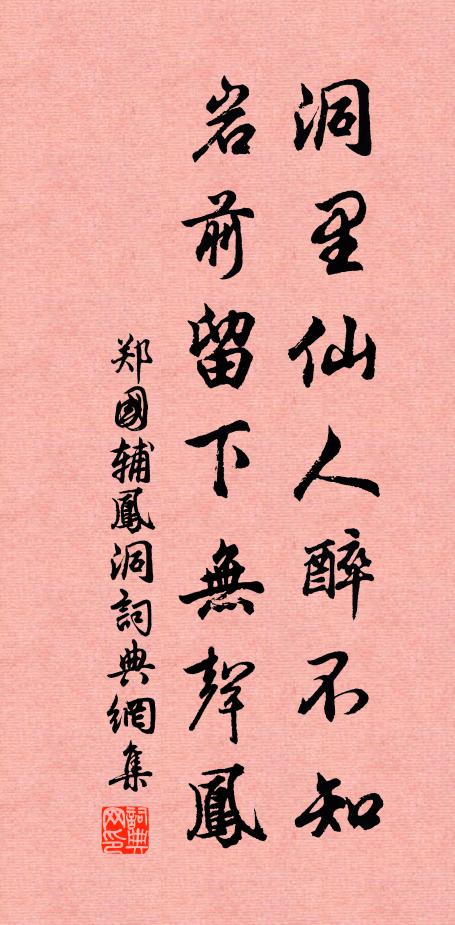 洞里仙人醉不知
岩前留下無聲鳳
郑國辅鳳洞詞典網集
詞典
网印